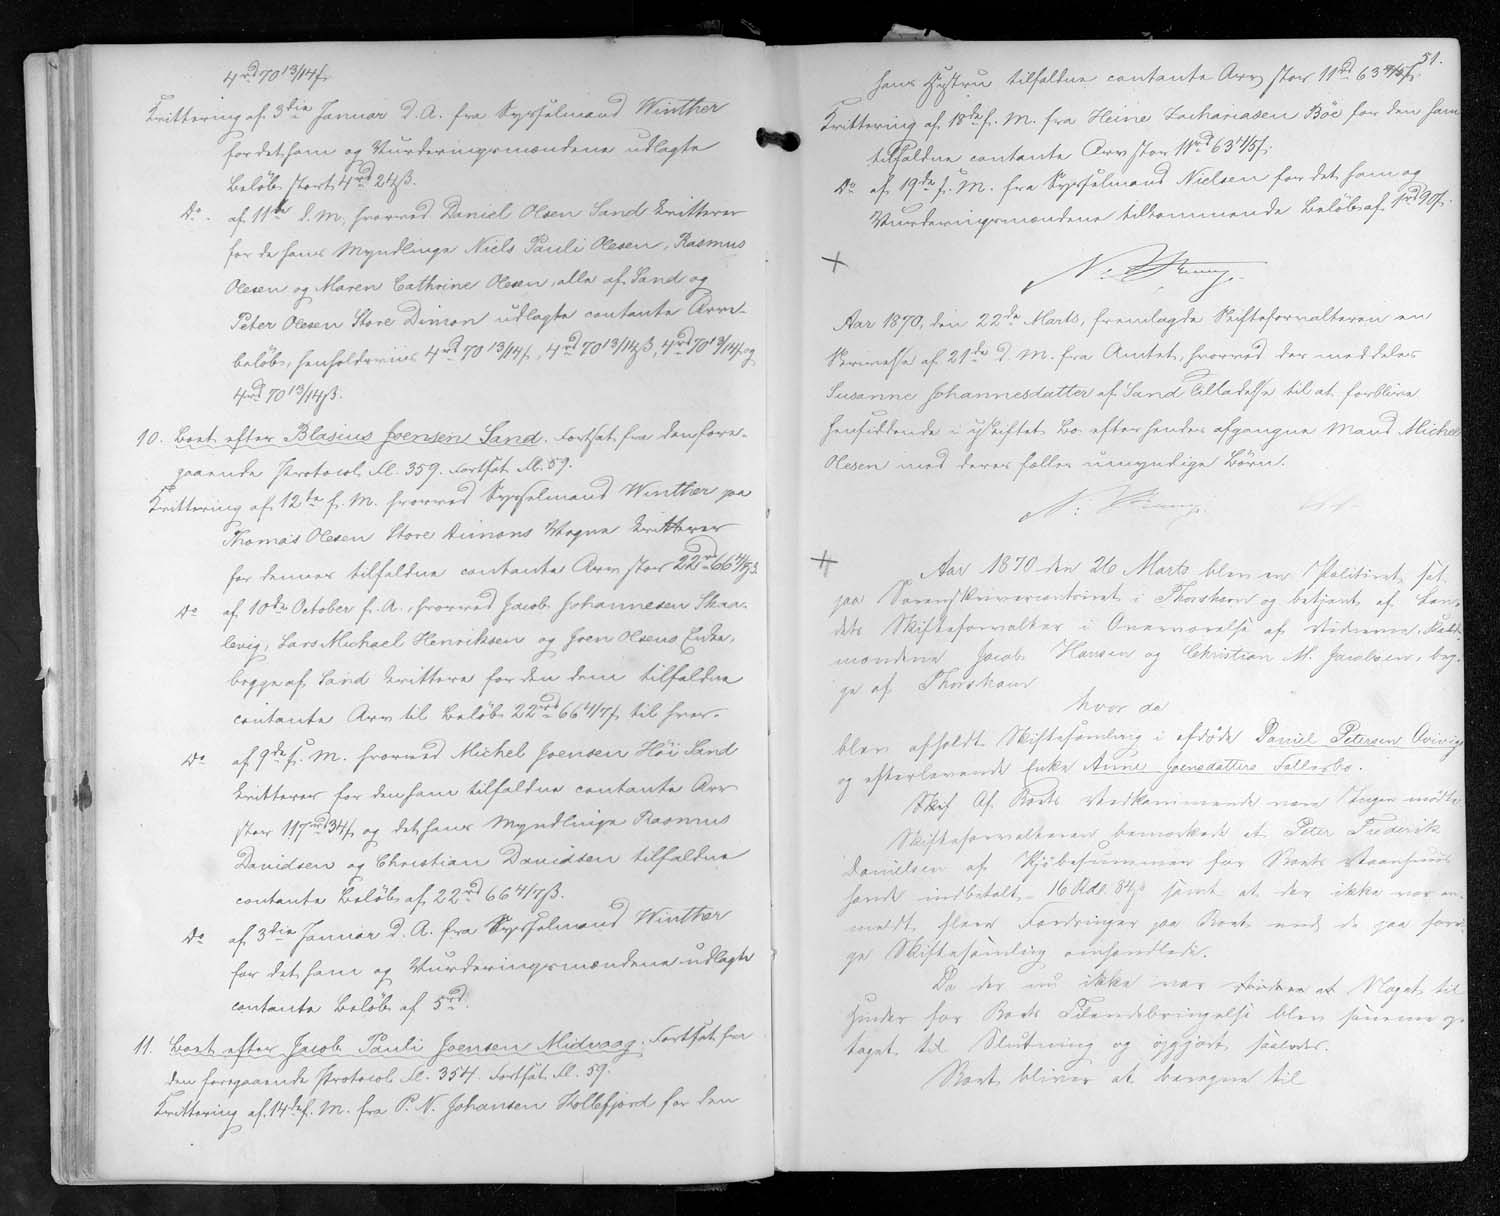 4rd 70 13/14 ß
Kvittering af 3die Januar d. A. fra Sysselmand Winther
for det ham og Vurderingsmændene udlagte
Beløb stort 4rd 24ß.
Do. af 11te d. M. hvorved Daniel Olsen Sand kvitterer
for de hans Myndlinge Niels Pauli Olesen, Rasmus
Olesen og Maren Cathrine Olesen, alle af Sand og
Peter Olesen Store Dimon udlagte contante Arve-
beløb, henholdsviis 4rd 70 13/14 ß, 4rd 70 13/14 ß, 4rd 70 13/14 ß og
4rd 70 13/14 ß.
10. Boet efter Blasius Joensen Sand. Fortsat fra den fore-
gaaende Protocol Fl. 359. Fortsat Fl. 59.
Kvittering af 12te f. M. hvorved Sysselmand Winther paa
Thomas Olesen Store Dimons Vegne kvitterer
for dennes tilfaldne contante Arv stor 22rd 66 4/7 ß.
Do af 10de October f. A., hvorved Jacob Johannesen Skaa-
levig, Lars Michael Henriksen og Joen Olsens Enke,
begge af Sand kvittere for den dem tilfaldne
contante Arv til Beløb 22rd 66 4/7 ß til hver.
Do af 9de f. M. hvorved Michel Joensen Höi Sand
kvitterer for den ham tilfaldne contante Arv
stor 117rd 34ß og det hans Myndlinge Rasmus
Davidsen og Christian Davidsen tilfaldne
contante Beløb af 22rd 66 4/7 ß.
Do af 3die Januar d. A. fra Sysselmand Winther
for det ham og Vurderingsmændene udlagte
contante Beløb af 5rd.
11. Boet efter Jacob Pauli Joensen Midvaag. Fortsat fra
den foregaaende Protocol Fl. 354. Fortsat Fl. 59.
Kvittering af 14de f. M. fra P. N. Johansen Kollefjord for den
51.
hans Hustru tilfaldne contante Arv stor 11rd 63 4/5 ß.
Kvittering af 18de f. M. fra Heine Zachariasen Böe for den ham
tilfaldne contante Arv stor 11rd 63 4/5 ß.
Do af 19de f. M. fra Sysselmand Nielsen for det ham og
Vurderingsmændene tilkommende Beløb af 1rd 90ß.
Aar 1870, den 22de Marts, fremlagde Skifteforvalteren en
Skrivelse af 21de d. M. fra Amtet, hvorved der meddeles
Susanne Johannesdatter af Sand Tilladelse til at forblive
hensiddende i uskiftet Bo efter hendes afgangne Mand Michel
Olesen med deres fælles umyndige Børn.
Aar 1870 den 26 Marts blev en Skifteret sat
paa Sorenskrivercontoiret i Thorshavn og betjent af Lan-
dets Skifteforvalter i Overværelse af Vidnerne, Rets-
mændene Jacob Hansen og Christian M. Jacobsen, beg-
ge af Thorshavn
hvor da
blev afholdt Skiftesamling i afdøde Daniel Petersen Qvivigs
og efterlevende Enke Anne Joensdatters Fællesbo.
Af Boets Vedkommende var Ingen mødte
Skifteforvalteren bemærkede at Peter Frederik
Danielsen af Kjøbesummen for Boets Vaanhuus
havde indbetalt 16 Rdl. 84ß samt at der ikke var an-
meldt flere Fordringer paa Boet end de paa forri-
ge Skiftesamling omhandlede.
Da der nu ikke var Noget til
Hinder for Boets Tilendebringelse blev samme op-
taget til Slutning og opgjort saaledes.
Boet bliver at beregne til